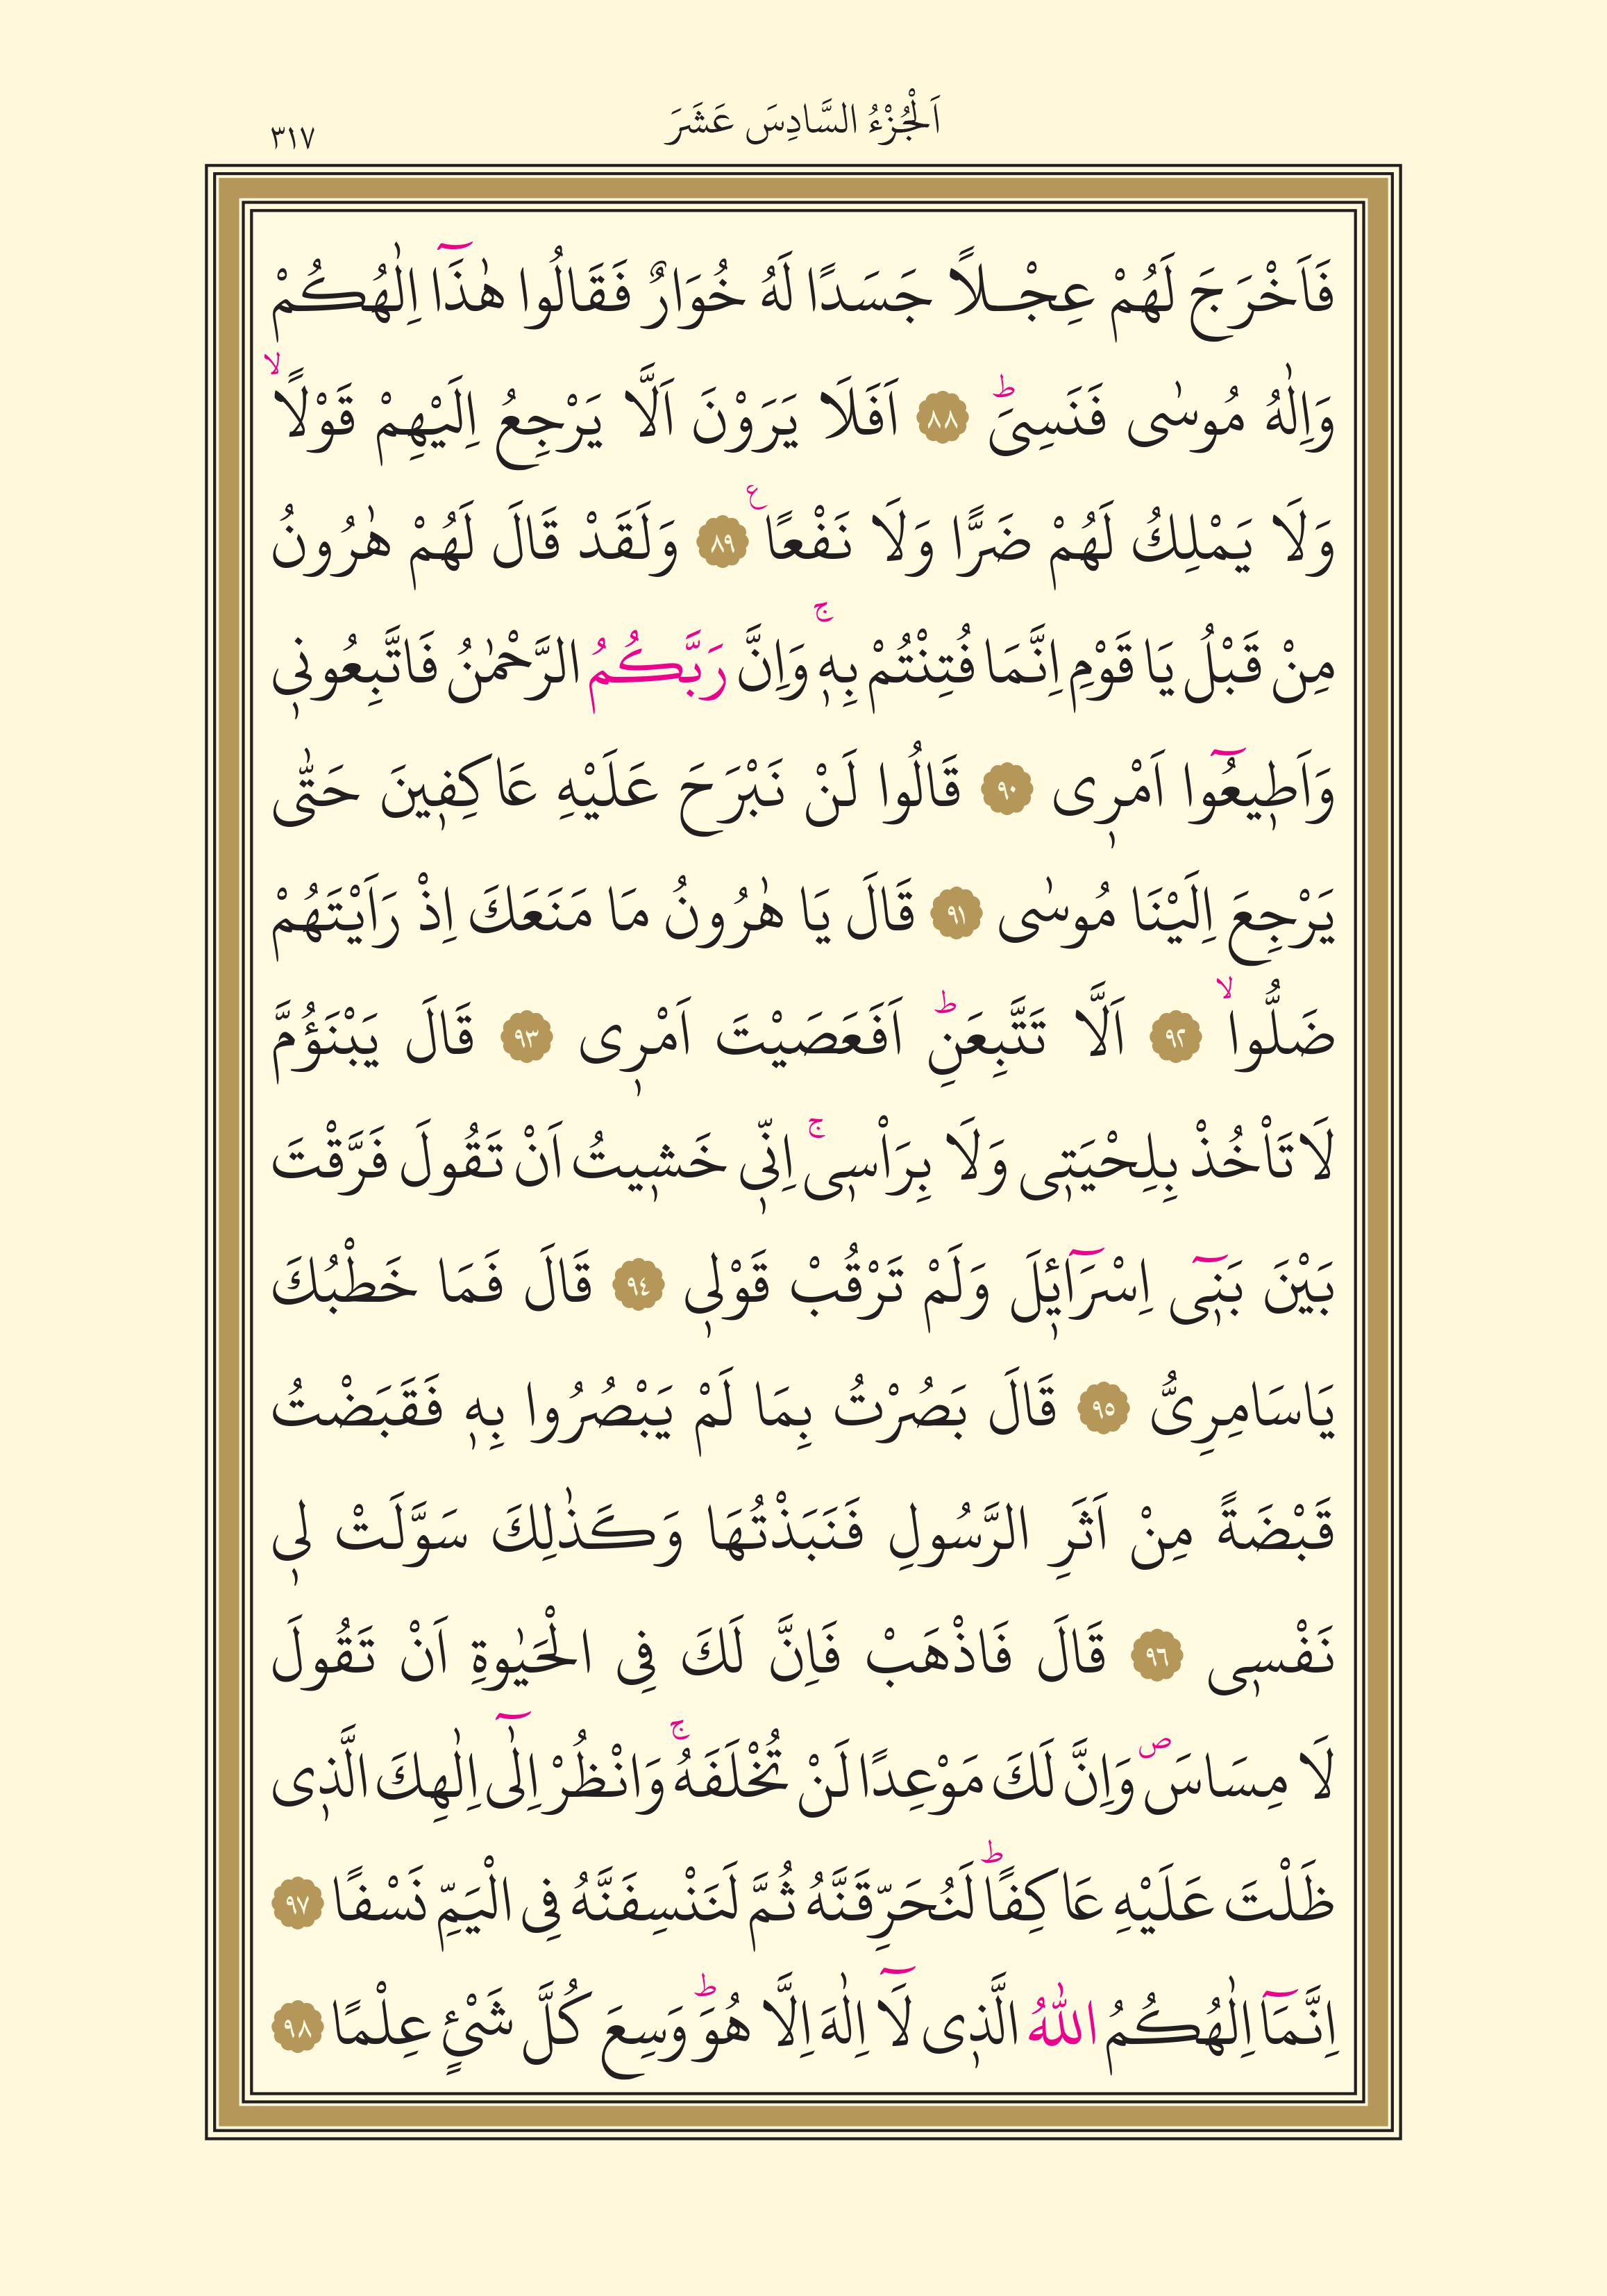 اَلْجُزْءُ السَّادِسَ عَشَرَ
٣١٧
فَاَخْرَجَ لَهُمْ عِجْلاً جَسَدًا لَهُ خُوَارٌ فَقَالُوا هٰذَٓا اِلٰهُكُمْ
وَاِلٰهُ مُوسٰى فَنَسِىَۜ ﴿٨٨﴾ اَفَلَا يَرَوْنَ اَلَّا يَرْجِعُ اِلَيْهِمْ قَوْلًاۙ
وَلَا يَمْلِكُ لَهُمْ ضَرًّا وَلَا نَفْعًا ع ﴿٨٩﴾ وَلَقَدْ قَالَ لَهُمْ هٰرُونُ
مِنْ قَبْلُ يَا قَوْمِ اِنَّمَا فُتِنْتُمْ بِهٖۚ وَاِنَّ رَبَّكُمُ الرَّحْمٰنُ فَاتَّبِعُونٖى
وَاَطٖيعُٓوا اَمْرٖى ﴿٩٠﴾ قَالُوا لَنْ نَبْرَحَ عَلَيْهِ عَاكِفٖينَ حَتّٰى
يَرْجِعَ اِلَيْنَا مُوسٰى ﴿٩١﴾ قَالَ يَا هٰرُونُ مَا مَنَعَكَ اِذْ رَاَيْتَهُمْ
ضَلُّواۙ ﴿٩٢﴾ اَلَّا تَتَّبِعَنِۜ اَفَعَصَيْتَ اَمْرٖى ﴿٩٣﴾ قَالَ يَبْنَؤُمَّ
لَا تَاْخُذْ بِلِحْيَتٖى وَلَا بِرَاْسٖىۚ اِنّٖى خَشٖيتُ اَنْ تَقُولَ فَرَّقْتَ
بَيْنَ بَنٖٓى اِسْرَٓائٖلَ وَلَمْ تَرْقُبْ قَوْلٖى ﴿٩٤﴾ قَالَ فَمَا خَطْبُكَ
يَاسَامِرِىُّ ﴿٩٥﴾ قَالَ بَصُرْتُ بِمَا لَمْ يَبْصُرُوا بِهٖ فَقَبَضْتُ
قَبْضَةً مِنْ اَثَرِ الرَّسُولِ فَنَبَذْتُهَا وَكَذٰلِكَ سَوَّلَتْ لٖى
نَفْسٖى ﴿٩٦﴾ قَالَ فَاذْهَبْ فَاِنَّ لَكَ فِى الْحَيٰوةِ اَنْ تَقُولَ
لَا مِسَاسَۖ وَاِنَّ لَكَ مَوْعِدًا لَنْ تُخْلَفَهُۚ وَانْظُرْ اِلٰٓى اِلٰهِكَ الَّذٖى
ظَلْتَ عَلَيْهِ عَاكِفًاۜ لَنُحَرِّقَنَّهُ ثُمَّ لَنَنْسِفَنَّهُ فِى الْيَمِّ نَسْفًا ﴿٩٧﴾
اِنَّمَٓا اِلٰهُكُمُ اللّٰهُ الَّذٖى لَٓا اِلٰهَ اِلَّا هُوَۜ وَسِعَ كُلَّ شَىْءٍ عِلْمًا ﴿٩٨﴾